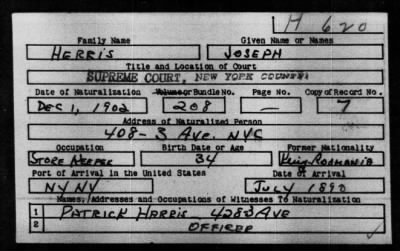 H 620
Family Name Given Name or Names
HERRIS JOSEPH
Title and Location of Court
SUPREME COURT, NEW YORK COUNTY
Date of Naturalization Volume or Bundle No. Page No. Copy of Record No.
DEC 1, 1902 208 — 7
Address of Naturalized Person
408-3 AVE. NYC
Occupation Birth Date or Age Former Nationality
STORE KEEPER 34 King Roumania
Port of Arrival in the United States Date of Arrival
NY NY JULY 1890
Names, Addresses and Occupations of Witnesses to Naturalization
1 PATRICK HARRIS 428 3 AVE
2 OFFICER